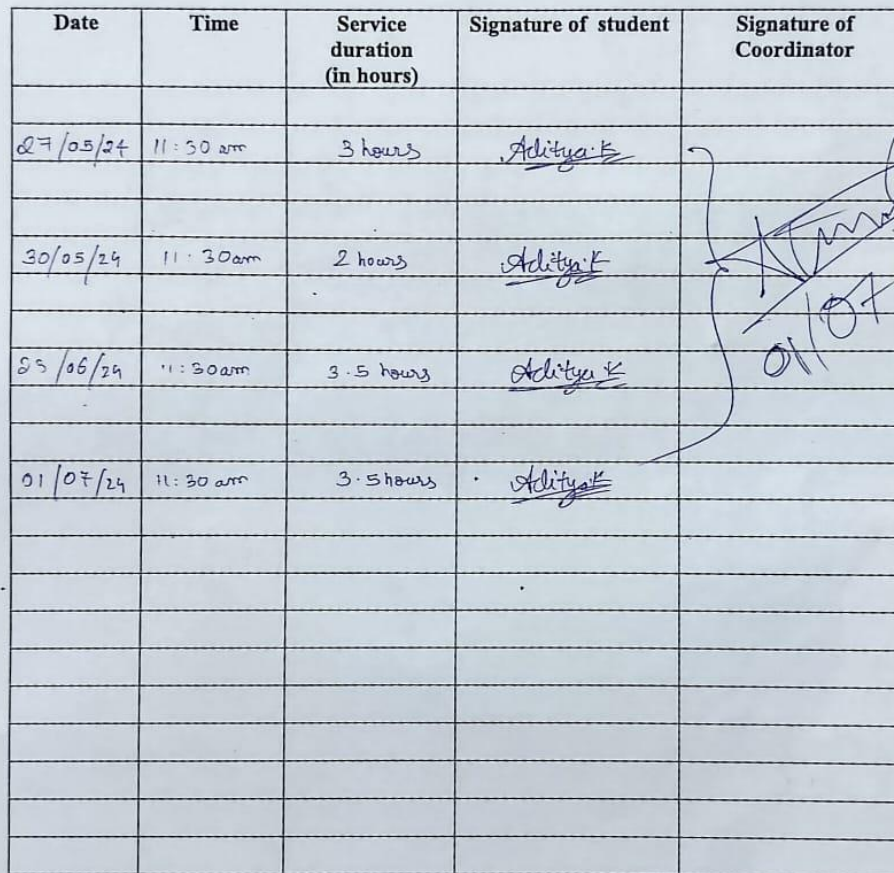 Date Time Service duration (in hours) Signature of student Signature of Coordinator
27/05/24 11:30 am 3 hours Aditya.K
30/05/24 11.30am 2 hours Aditya.K
25/06/24 11:30am 3.5 hours Aditya K
01/07/24 11:30 am 3.5 hours Aditya.K
01/07